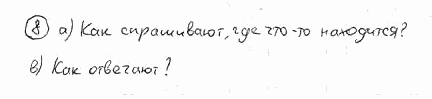 8 а) Как спрашивают, где что-то находится?
в) Как отвечают?